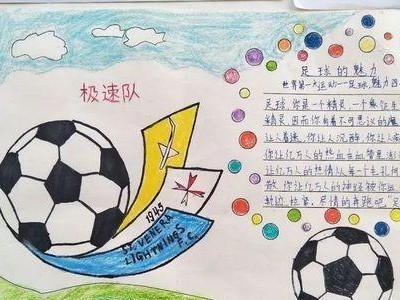 极速队
1945
ST. VENERA
LIGHTNINGS
F.C.
足球的魅力
世界第一大运动——足球,魅力四
足球,你是一个精灵,一个象征生
精灵,因而你有着不可思议的魔
让人着迷,你让人沉醉,你让人
你让亿万人的热血在血管里
让亿万人的热情从每一个毛孔
散,你让亿万人的神经被你